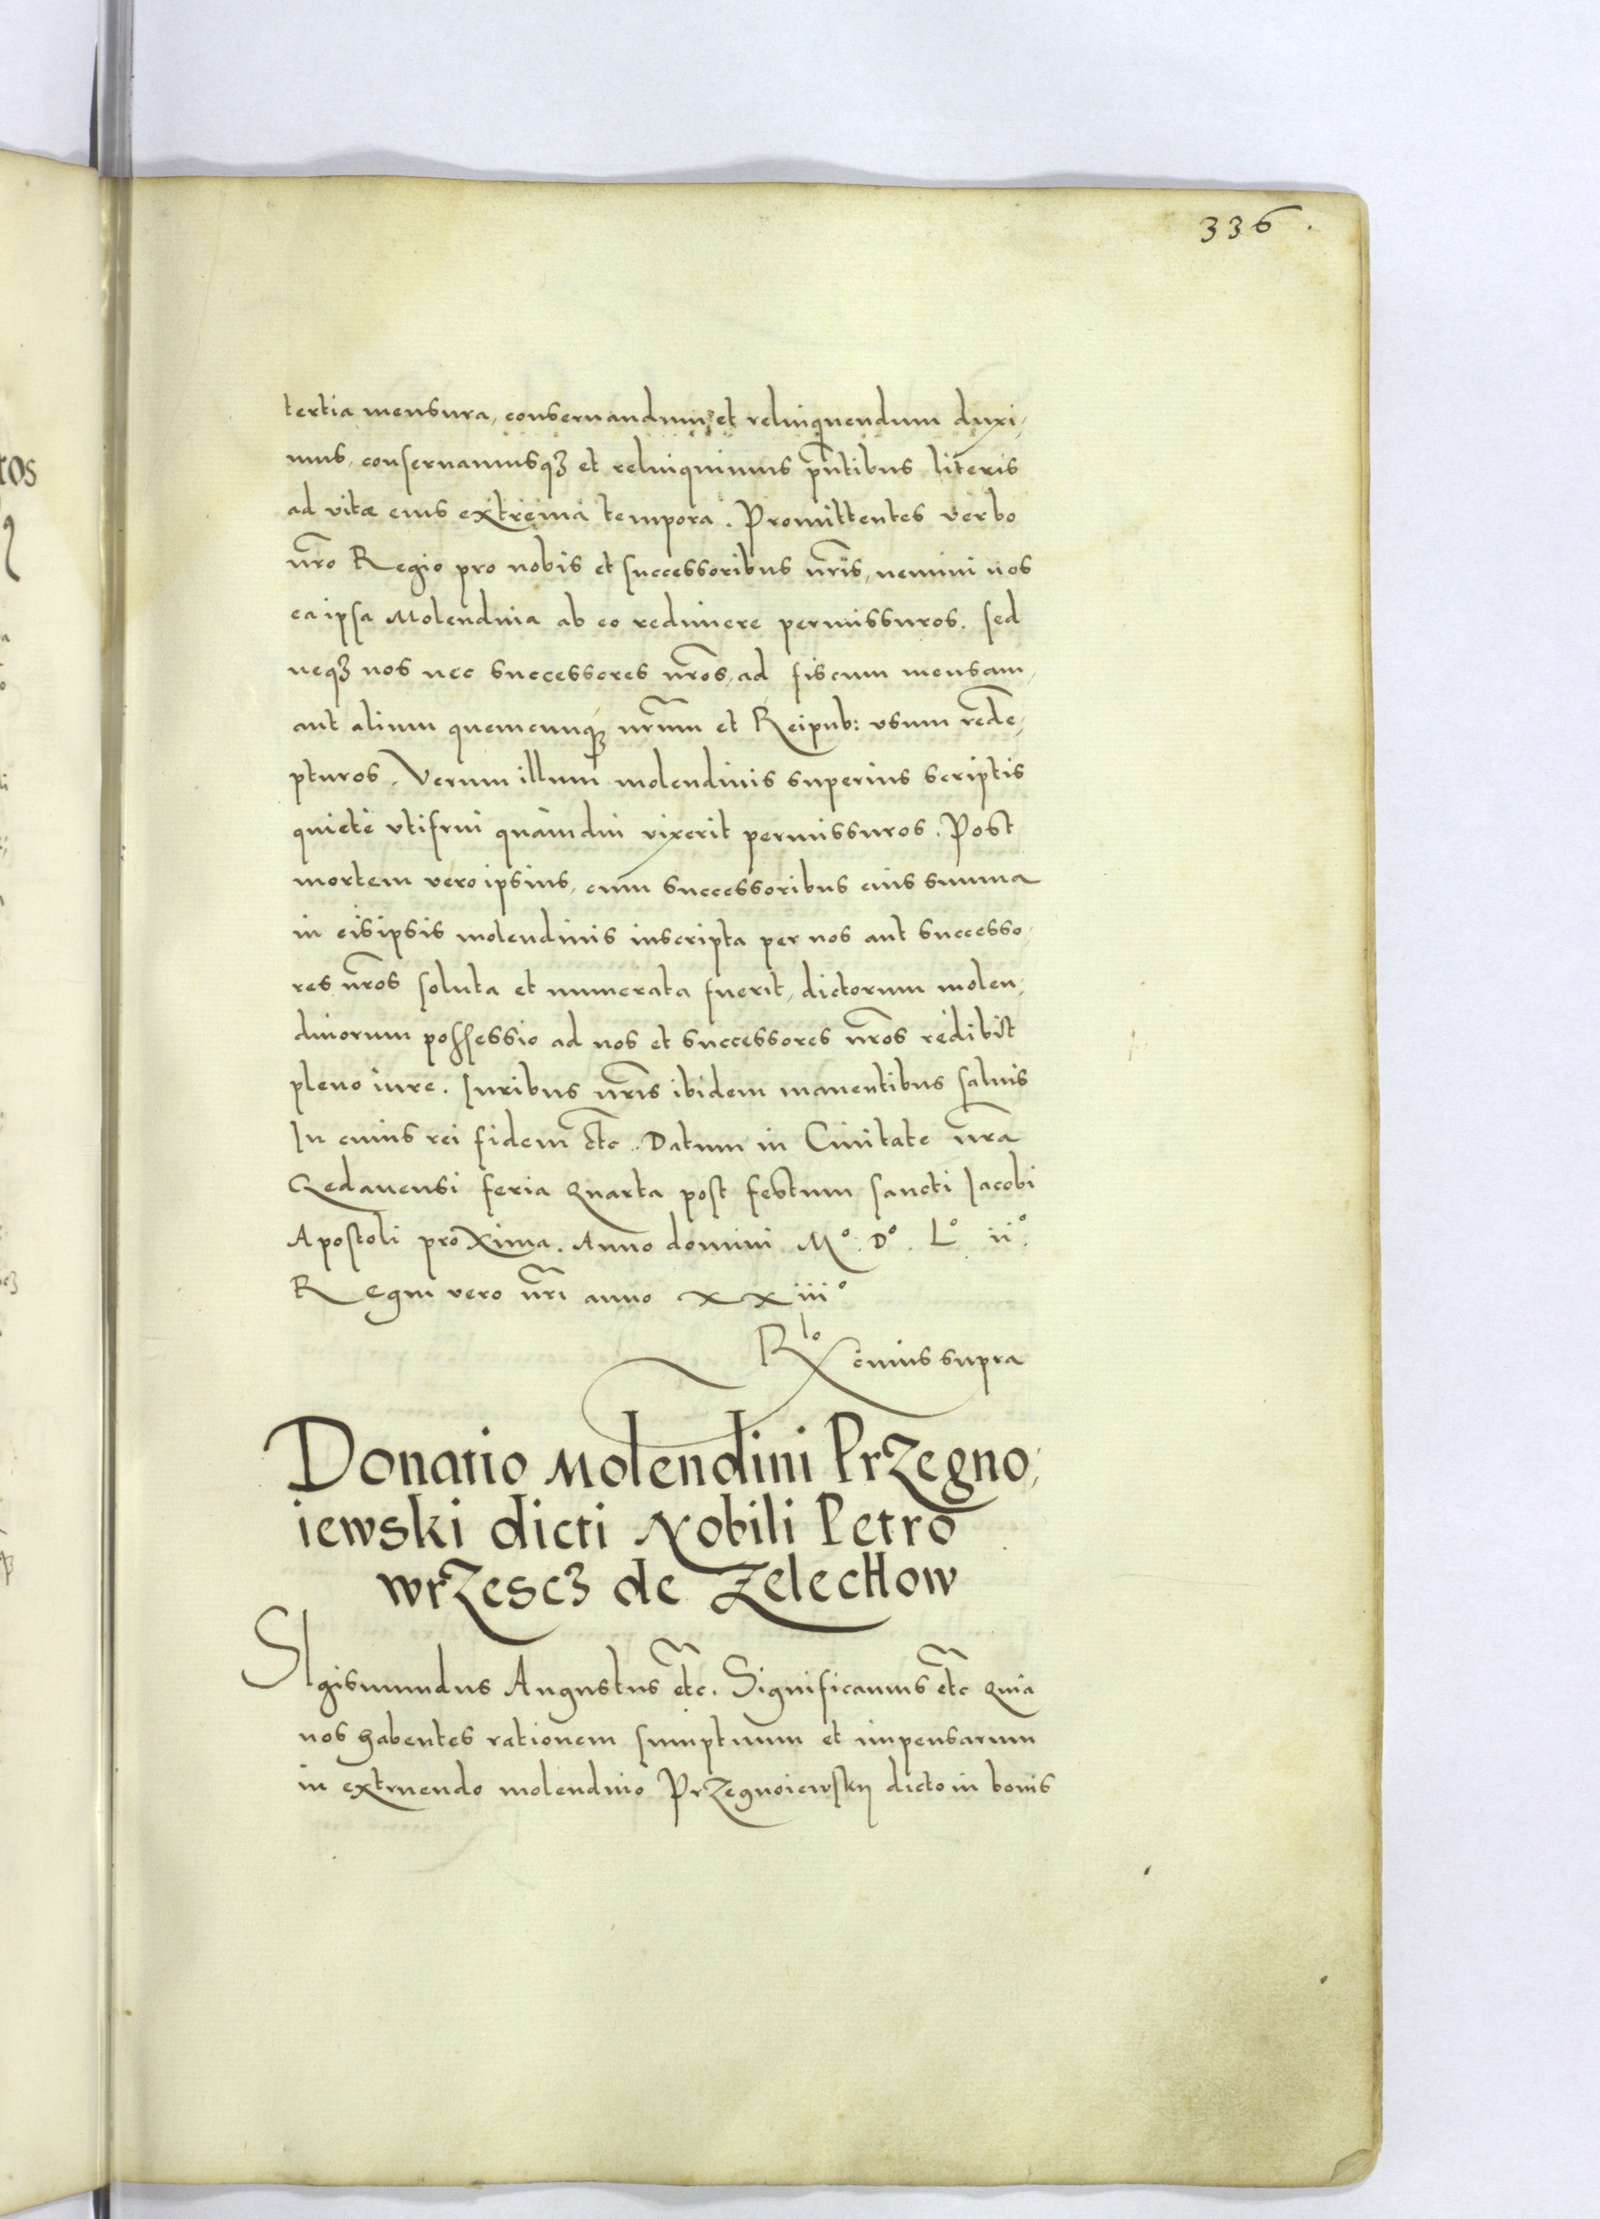 336.
tertia mensura, conseruandum et relinquendum duxi,
mus, conseruamusq3 et relinquimus pñtibus literis
ad vitæ eius extrema tempora. Promittentes verbo
nr̃o Regio pro nobis et successoribus nr̃is, nemini nos
ea ipsa Molendina ab eo redimere permissuros. sed
neq3 nos nec successores nr̃os, ad fiscum mensam,
aut alium quemcunq3 nr̃um et Reipub: vsum rede,
pturos. Verum illum molendinis superius scriptis
quietè vtifrui quàmdiu vixerit permissuros. Post
mortem vero ipsius, cum successoribus eius summa
in eisipsis molendinis inscripta per nos aut successo,
res nr̃os soluta et numerata fuerit, dictorum molen,
dinorum possessio ad nos et successores nr̃os redibit
pleno iure. Iuribus nr̃is ibidem manentibus saluis
In cuius rei fidem etc̃. Datum in Ciuitate nr̃a
Gedanensi feria quarta post festum sancti Iacobi
Apostoli proxima. Anno domini M° D° L° ii°.
Regni vero nr̃i anno xxiii°
Rlo cuius supra
Donatio Molendini Przegno,
iewski dicti Nobili Petro
wrzescz de Zelechow
SIgismundus Augustus etc̃. Significamus etc̃ quia
nos habentes rationem sumptuum et impensarum
in extruendo molendino Przegnoiewsky dicto in bonis